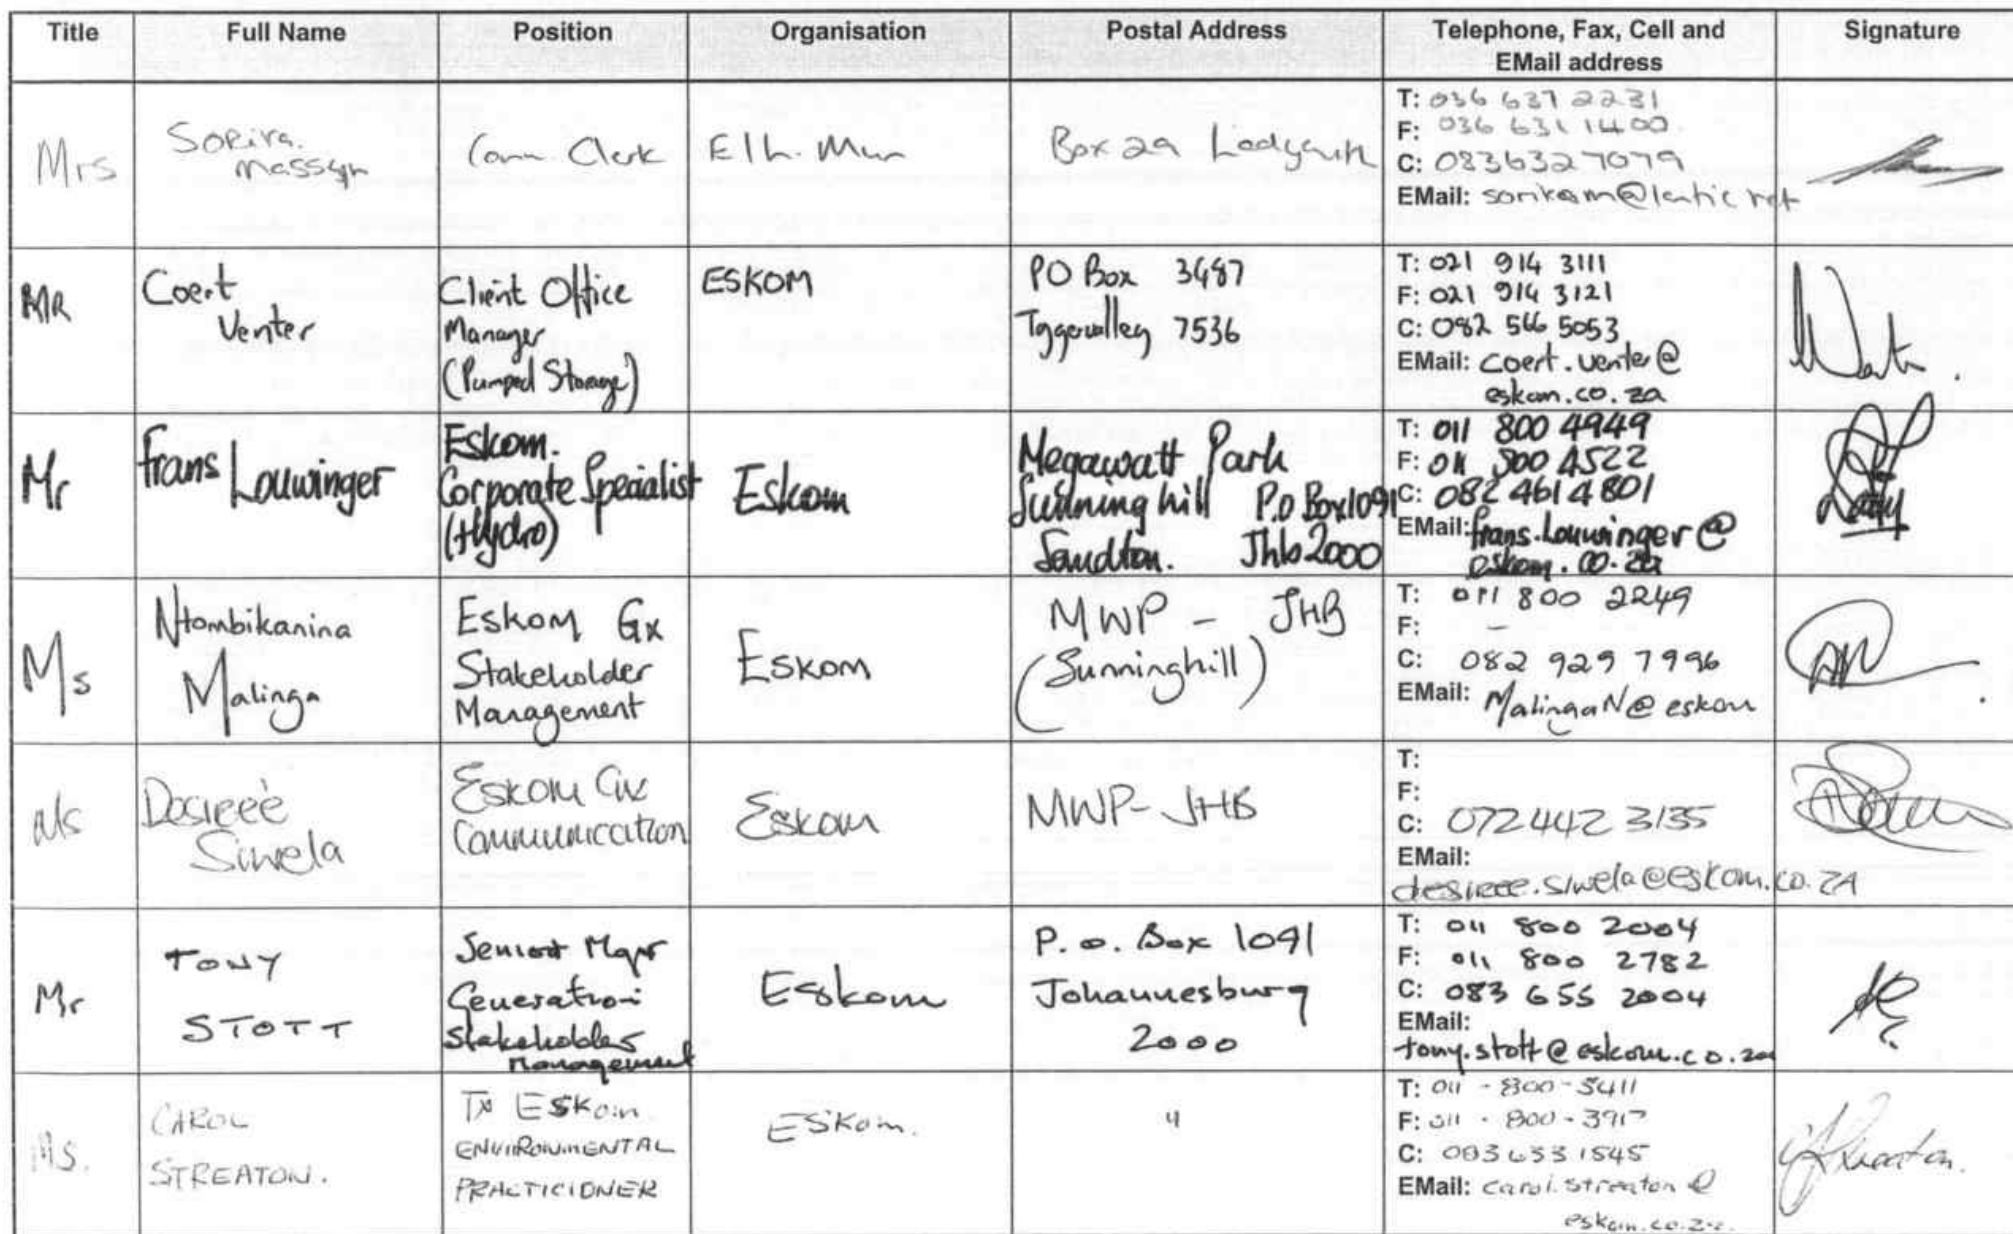 Title Full Name Position Organisation Postal Address Telephone, Fax, Cell and EMail address Signature
Mrs
Massyn
Clerk
Box 29
T: 036 637 2231
F: 036 631 1400
C: 0836327079
EMail:
MR
Coert
Venter
Client Office
Manager
(Pumped Storage)
ESKOM
PO Box 3487
Tygervalley 7536
T: 021 914 3111
F: 021 914 3121
C: 082 566 5053
EMail: coert.venter@
eskom.co.za
Mr
Frans Louwinger
Eskom.
Corporate Specialist
(Hydro)
Eskom
Megawatt Park
Sunninghill P.O Box 1091
Sandton. Jhb 2000
T: 011 800 4949
F: 011 800 4522
C: 082 461 4801
EMail: frans.Louwinger@
eskom.co.za
Ms
Ntombikanina
Malinga
Eskom Gx
Stakeholder
Management
Eskom
MWP - JHB
(Sunninghill)
T: 011 800 2249
F: -
C: 082 929 7996
EMail: MalingaN@eskom
Ms
Desireeé
Siwela
Eskom Gx
Communication
Eskom
MWP-JHB
T:
F:
C: 072 442 3135
EMail:
desireee.siwela@eskom.co.ZA
Mr
TONY
STOTT
Senior Mgr
Generation
Stakeholder
Management
Eskom
P.O. Box 1091
Johannesburg
2000
T: 011 800 2004
F: 011 800 2782
C: 083 655 2004
EMail:
tony.stott@eskom.co.za
Ms.
CAROL
STREATON.
Tx Eskom.
ENVIRONMENTAL
PRACTICIONER
ESKom.
"
T: 011 - 800 - 5411
F: 011 - 800 - 3917
C: 083 633 1545
EMail: carol.streaton@
eskom.co.za.